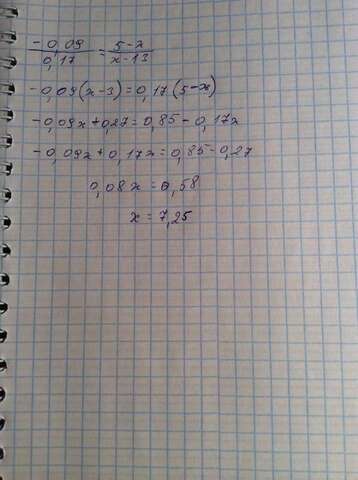 -0,09/0,17 = 5-x/x-13
-0,09(x-3)=0,17(5-x)
-0,09x+0,27=0,85-0,17x
-0,09x+0,17x=0,85-0,27
0,08x=0,58
x=7,25